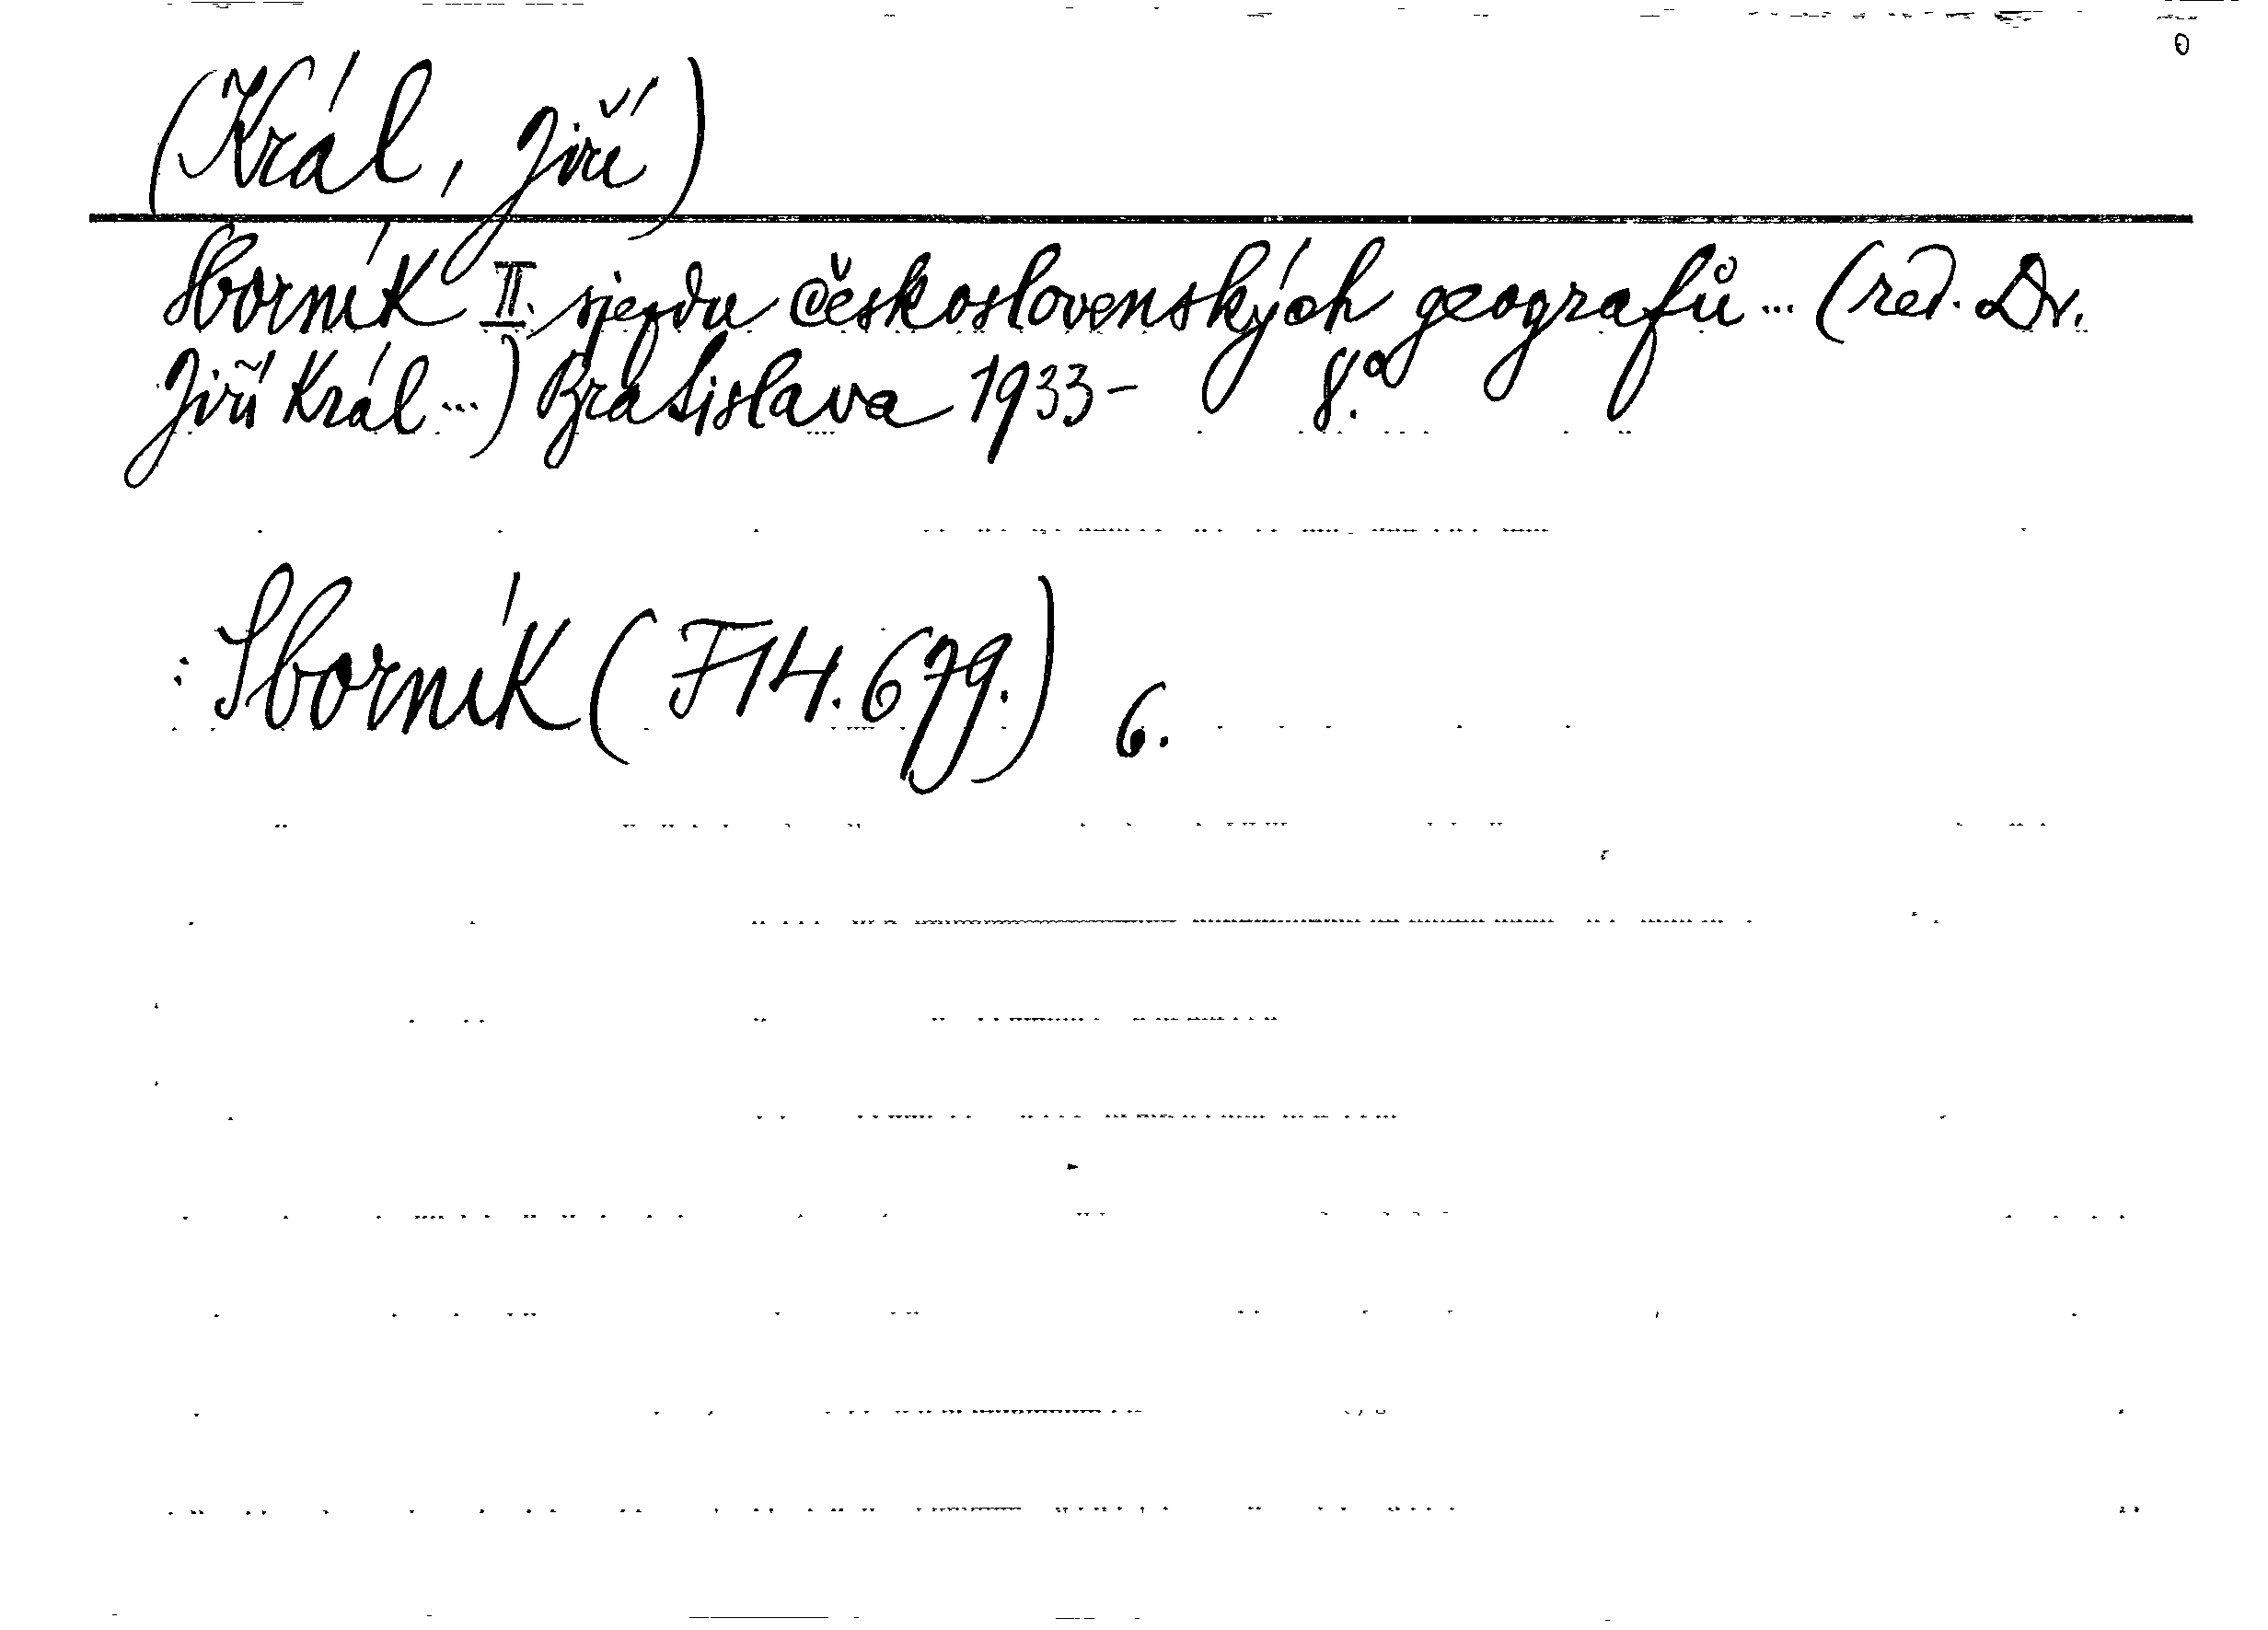 (Král, Jiří)
Sborník II. sjezdu československých geografů ... (red. Dr.
Jiří Král ...) Bratislava 1933- 8.°
: Sborník (F14.679.) 6.